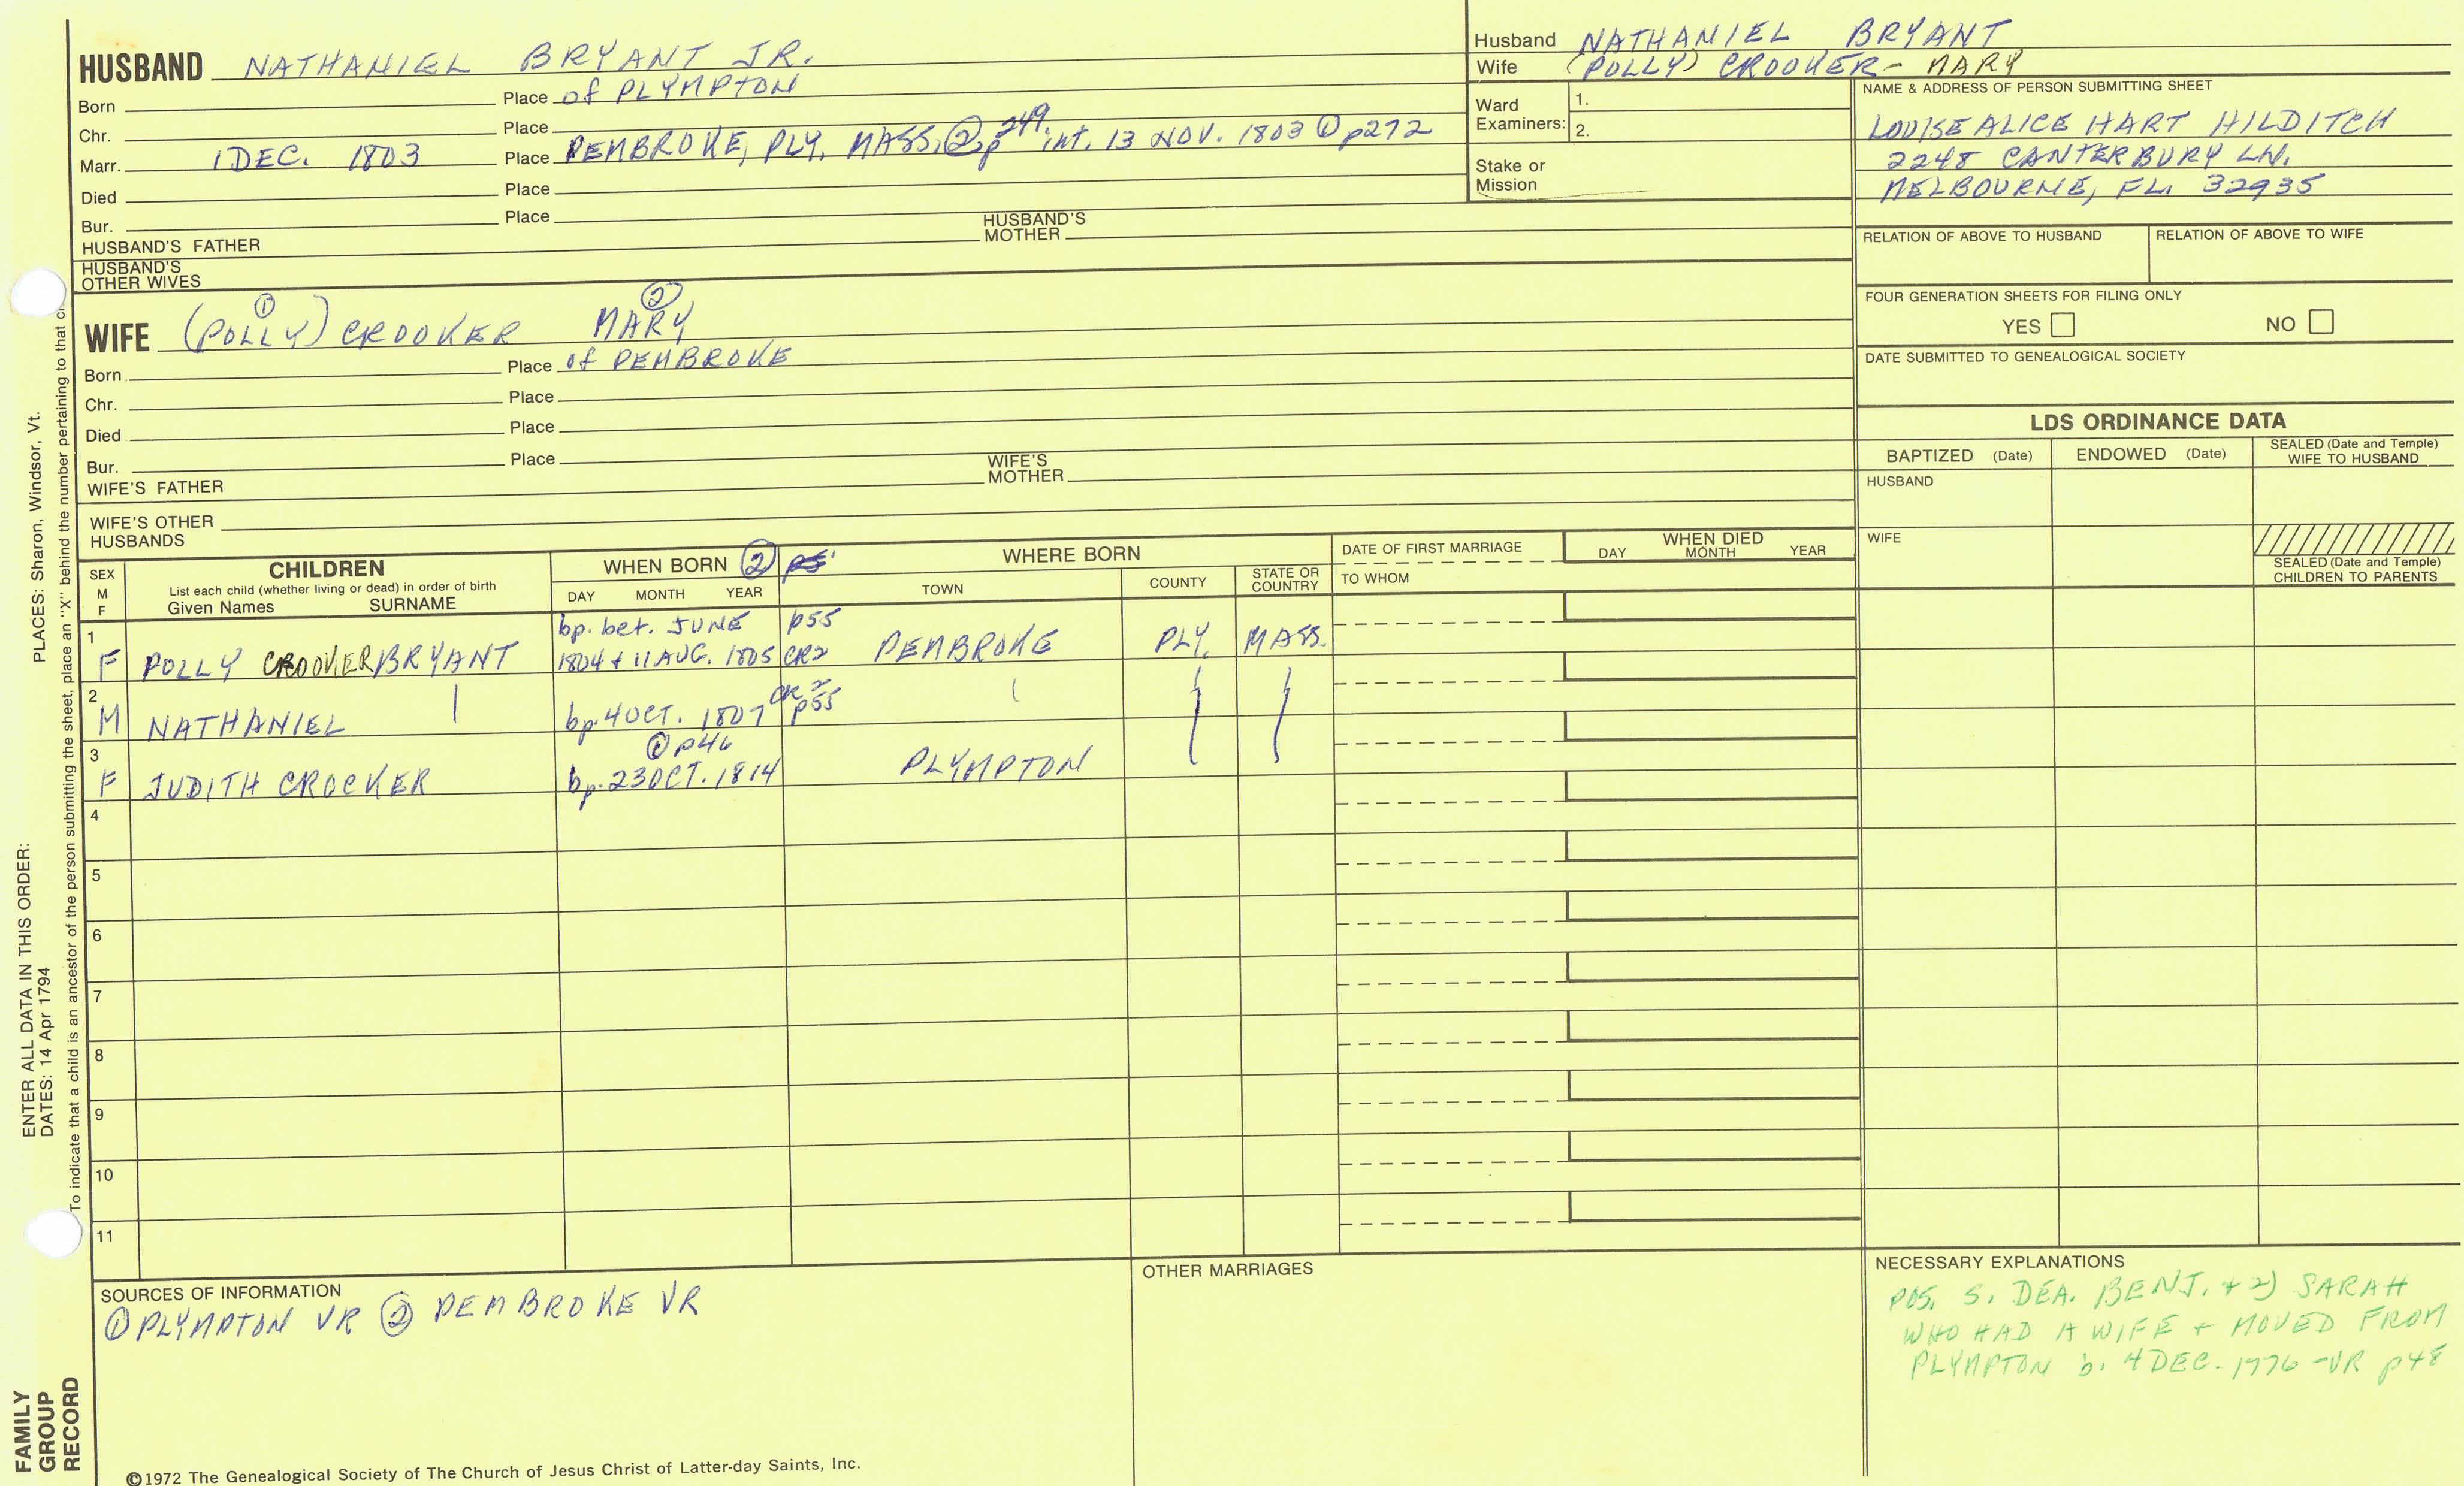 HUSBAND NATHANIEL BRYANT JR.
Born Place of PLYMPTON
Chr. Place
Marr. 1 DEC. 1803 Place PEMBROKE, PLY. MASS. ② p 249 int. 13 NOV. 1803 ① p272
Died Place
Bur. Place
HUSBAND'S FATHER HUSBAND'S MOTHER
HUSBAND'S OTHER WIVES
Husband NATHANIEL BRYANT
Wife (POLLY) CROOKER - MARY
Ward Examiners: 1.
2.
Stake or Mission
NAME & ADDRESS OF PERSON SUBMITTING SHEET
LOUISE ALICE HART HILDITCH
2248 CANTERBURY LN.
MELBOURNE, FL. 32935
RELATION OF ABOVE TO HUSBAND RELATION OF ABOVE TO WIFE
FOUR GENERATION SHEETS FOR FILING ONLY
YES NO
DATE SUBMITTED TO GENEALOGICAL SOCIETY
① ②
WIFE (POLLY) CROOKER MARY
Born Place of PEMBROKE
Chr. Place
Died Place
Bur. Place
WIFE'S FATHER WIFE'S MOTHER
WIFE'S OTHER HUSBANDS
LDS ORDINANCE DATA
BAPTIZED (Date) ENDOWED (Date) SEALED (Date and Temple) WIFE TO HUSBAND
HUSBAND
WIFE
SEALED (Date and Temple) CHILDREN TO PARENTS
SEX M F
CHILDREN
List each child (whether living or dead) in order of birth
Given Names SURNAME
WHEN BORN ②
DAY MONTH YEAR
WHERE BORN
TOWN COUNTY STATE OR COUNTRY
DATE OF FIRST MARRIAGE
TO WHOM
WHEN DIED
DAY MONTH YEAR
1 bp. bet. JUNE p55
F POLLY CROOKER BRYANT 1804 + 11 AUG. 1805 CR2 PEMBROKE PLY. MASS.
2 CR2
M NATHANIEL bp. 4 OCT. 1807 p55
3 ① p46
F JUDITH CROCKER bp. 23 OCT. 1814 PLYMPTON
4
5
6
7
8
9
10
11
SOURCES OF INFORMATION
① PLYMPTON VR ② PEMBROKE VR
OTHER MARRIAGES
NECESSARY EXPLANATIONS
POS. S. DEA. BENJ. + 2) SARAH
WHO HAD A WIFE + MOVED FROM
PLYMPTON b. 4 DEC. 1776 - VR p48
©1972 The Genealogical Society of The Church of Jesus Christ of Latter-day Saints, Inc.
FAMILY
GROUP
RECORD
ENTER ALL DATA IN THIS ORDER: PLACES: Sharon, Windsor, Vt.
DATES: 14 Apr 1794
To indicate that a child is an ancestor of the person submitting the sheet, place an "X" behind the number pertaining to that